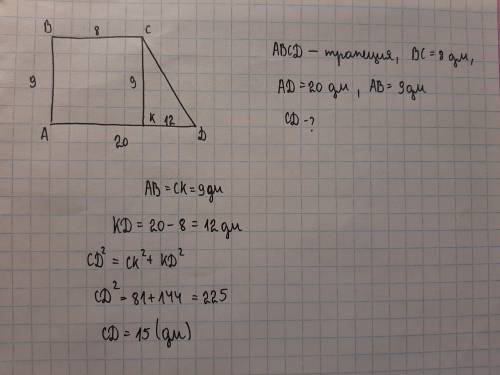 B 8 C
9 9
A K 12 D
20
ABCD — трапеция, BC = 8 дм,
AD = 20 дм, AB = 9 дм
CD - ?
AB = CK = 9 дм
KD = 20 - 8 = 12 дм
CD² = CK² + KD²
CD² = 81 + 144 = 225
CD = 15 (дм)